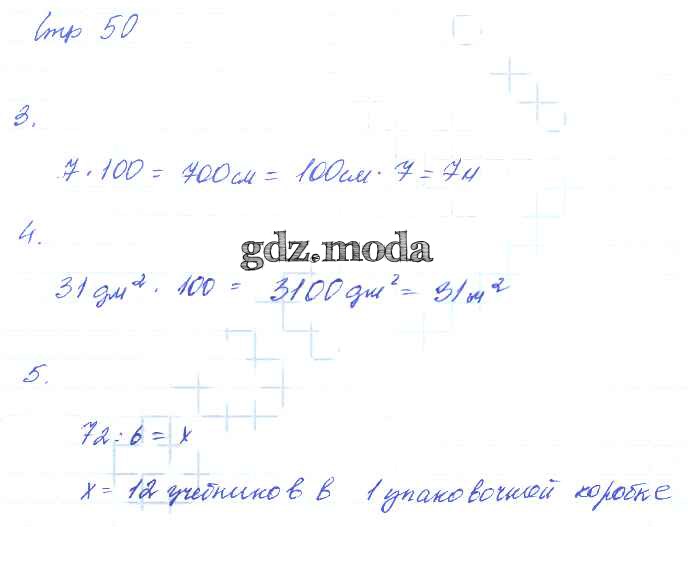 Стр 50
3.
7 · 100 = 700см = 100см · 7 = 7м
4.
gdz.moda
31дм² · 100 = 3100дм² = 31м²
5.
72 : 6 = x
x = 12 учебников в 1 упаковочной коробке